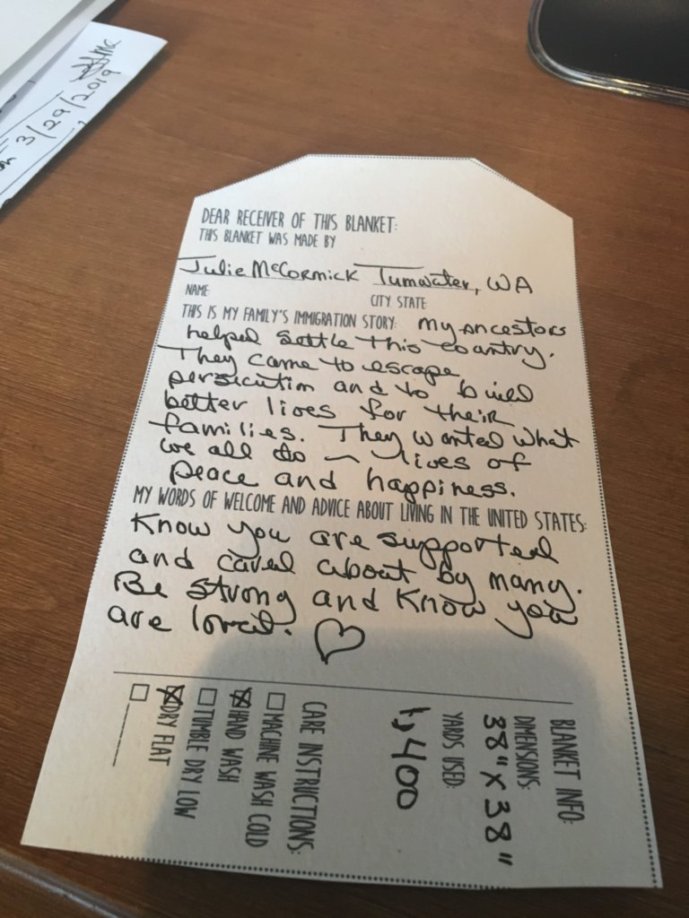 3/29/2019
DEAR RECEIVER OF THIS BLANKET:
THIS BLANKET WAS MADE BY
Julie McCormick Tumwater, WA
NAME CITY STATE
THIS IS MY FAMILY'S IMMIGRATION STORY: My ancestors
helped settle this country.
They came to escape
persicution and to build
better lives for their
families. They wanted what
we all do ~ lives of
peace and happiness.
MY WORDS OF WELCOME AND ADVICE ABOUT LIVING IN THE UNITED STATES:
Know you are supported
and cared about by many.
Be strong and know you
are loved. ♡
BLANKET INFO:
DIMENSIONS:
38" X 38"
YARDS USED:
1,400
CARE INSTRUCTIONS:
MACHINE WASH COLD
HAND WASH
TUMBLE DRY LOW
DRY FLAT